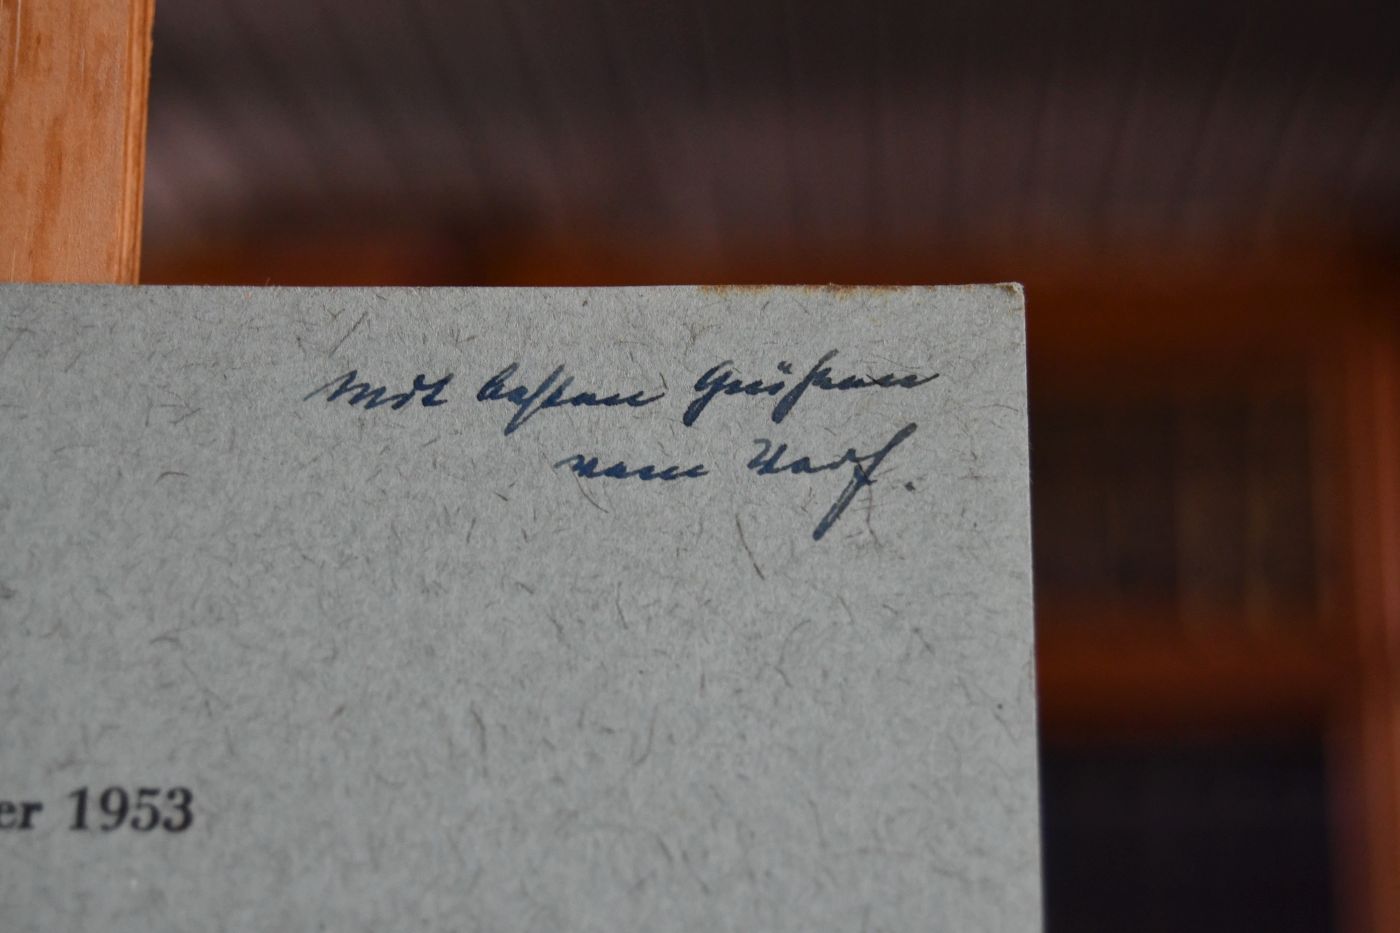 Mit besten Grüßen
vom Verf.
er 1953